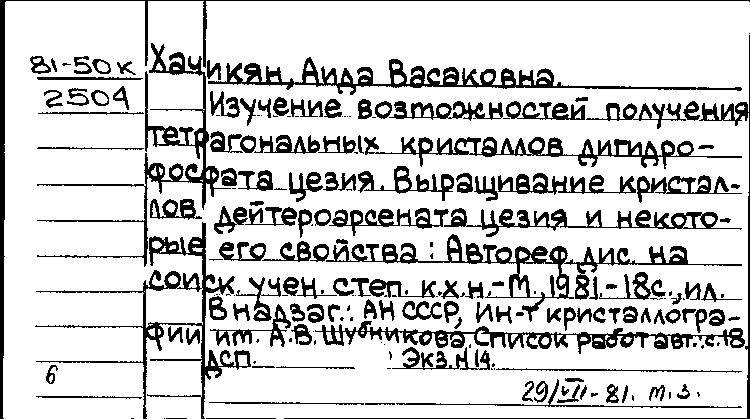 81-50к Хачикян, Аида Васаковна.
2504 Изучение возможностей получения
тетрагональных кристаллов дигидро-
фосфата цезия. Выращивание кристал-
лов дейтероарсената цезия и некото-
рые его свойства : Автореф. дис. на
соиск. учен. степ. к.х.н.-М., 1981.-18с., ил.
В надзаг.: АН СССР, Ин-т кристаллогра-
фии им. А.В. Шубникова. Список работ авт.: с.18.
ДСП. Экз. N 14.
6
29/VII-81. т.з.